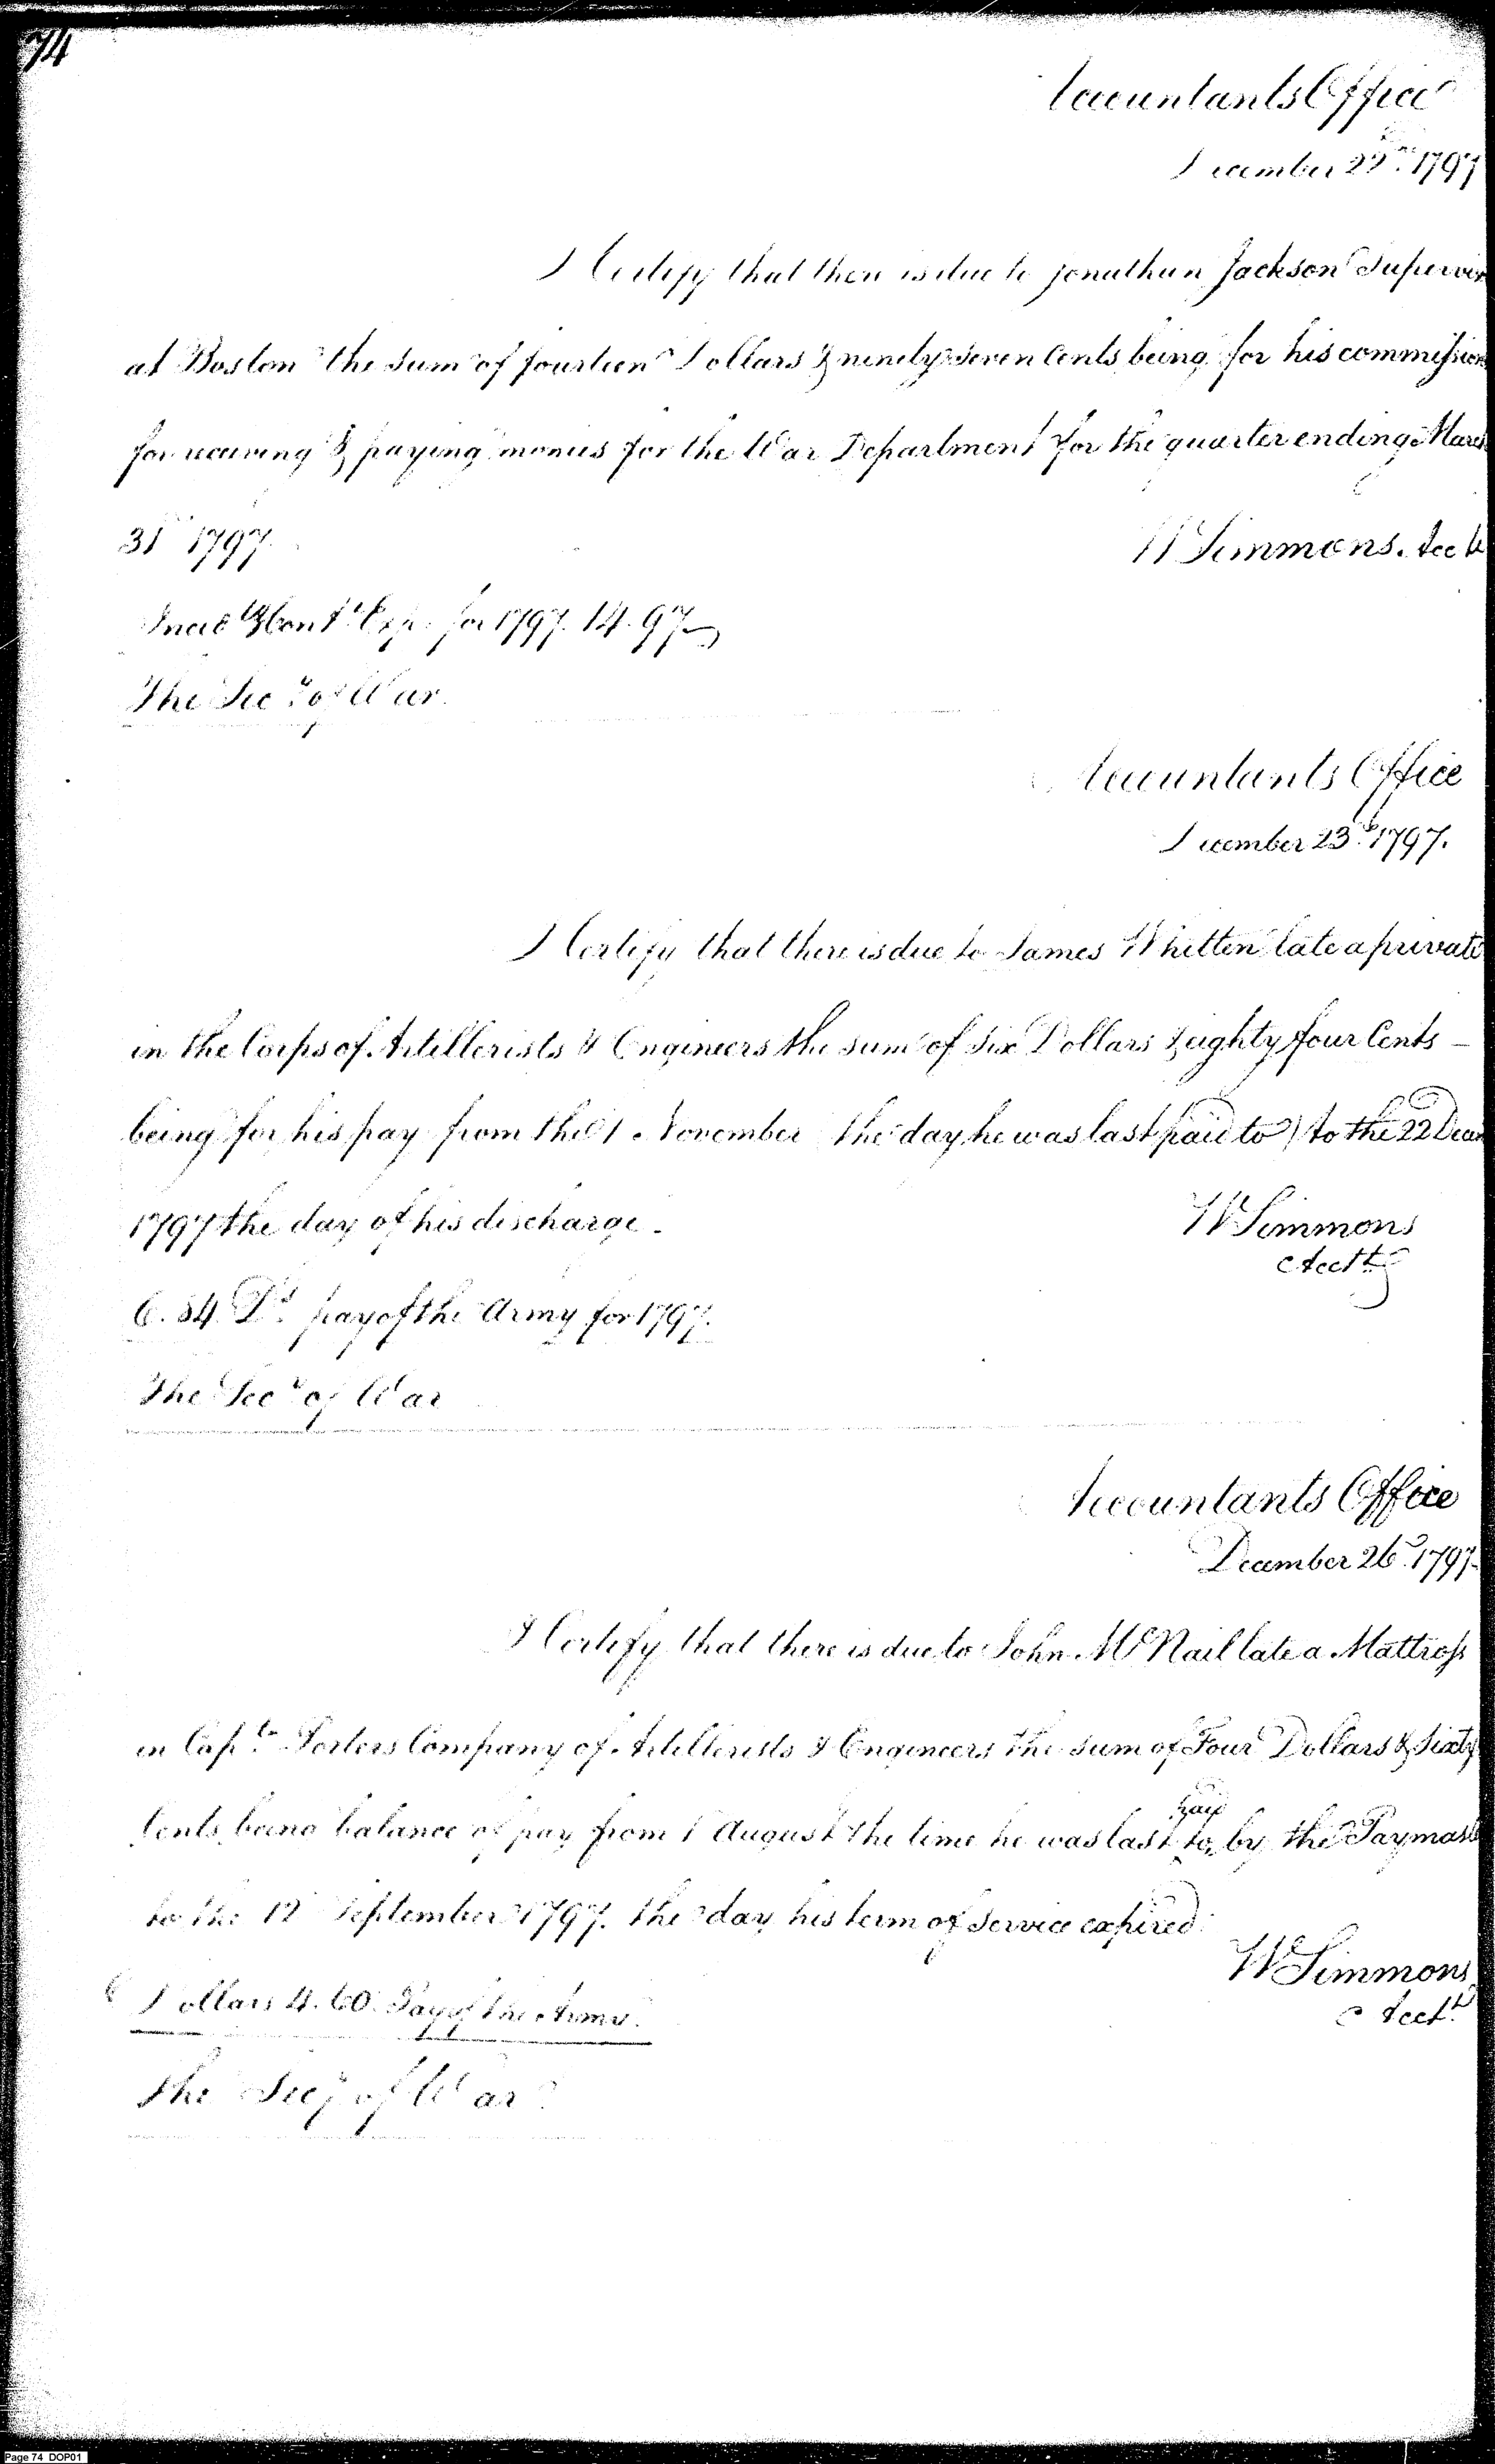 74
Accountants Office
December 22nd 1797
I Certify that there is due to Jonathan Jackson Supervisor
at Boston the sum of fourteen Dollars & ninety seven Cents being for his commission
for receiving & paying monies for the War Department for the quarter ending March
31st 1797.
W Simmons. Acct
Incid & Cont Exp. for 1797. 14.97
The Secy of War.
Accountants Office
December 23d 1797.
I Certify that there is due to James Whitten late a private
in the Corps of Artillerists & Engineers the sum of Six Dollars & eighty four Cents
being for his pay from the 1 November (the day he was last paid to) to the 22 Decem
1797 the day of his discharge.
W Simmons
Acctt
6.84 Ds pay of the Army for 1797.
The Secy of War
Accountants Office
December 26 1797
I Certify that there is due to John McNail late a Mattross
in Captn Porters Company of Artillerists & Engineers the sum of Four Dollars & Sixty
Cents being balance of pay from 1 August the time he was last paid to, by the Paymast
to the 12 September 1797. the day his term of Service expired
W Simmons
Acctt
Dollars 4.60. Pay of the Army.
The Secy of War
Page 74 DOP01